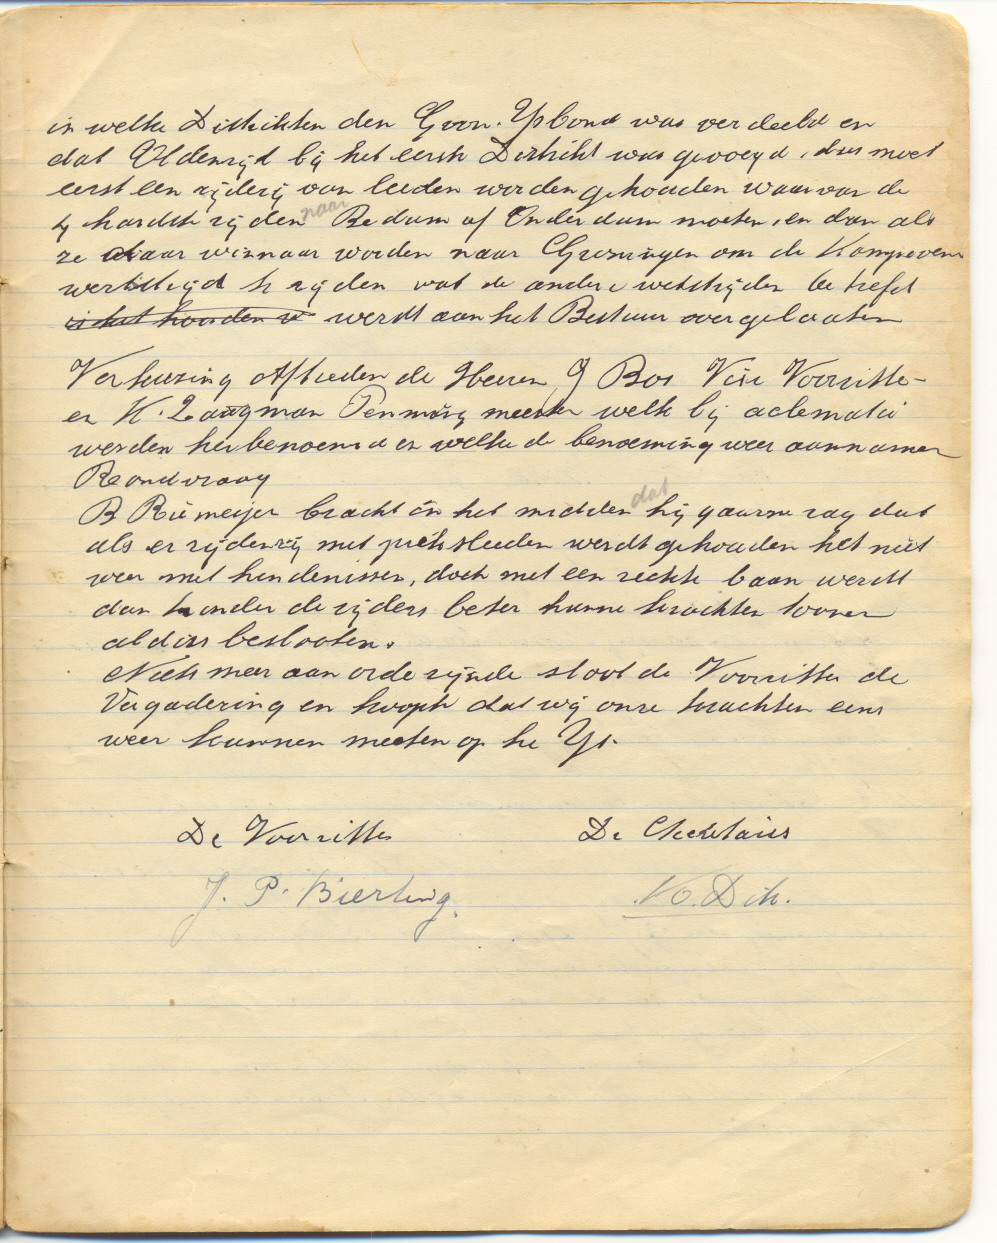 in welke Distrikten den Gron. Ysbond was verdeeld en
dat Oldenzijl bij het eerste Distrikt was gevoegd, dus moet
eerst een rijderij van leeden worden gehouden waarvan de
hardste rijden naar Bedum of Onderdam moeten, en dan als
ze daar winnaar worden naar Groningen om de Kampioens
wertstrijd te rijden wat de andere wetstrijden betreft
is het houden v werdt aan het Bestuur overgelaaten
Verkiezing Aftreden de Heeren J Bos Vice Voorzitter
en K. Langman Penningmeester welk bij aclematie
werden herbenoemd en welke de benoeming weer aannamen
Rondvraag
B Riemeijer bracht in het midden dat hij gaarne zag dat
als er rijderij met priksleeden werdt gehouden het niet
weer met hindenissen, doch met een rechte baan werdt
dan konden de rijders beter hunne krachten toonen
aldus beslooten.
Niets meer aan orde zijnde sloot de Voorzitter de
Vergadering en hoopte dat wij onze krachten eens
weer kunnen meeten op he Ys.
De Voorzitter De Secretaris
J. P. Bierling. K. Dik.